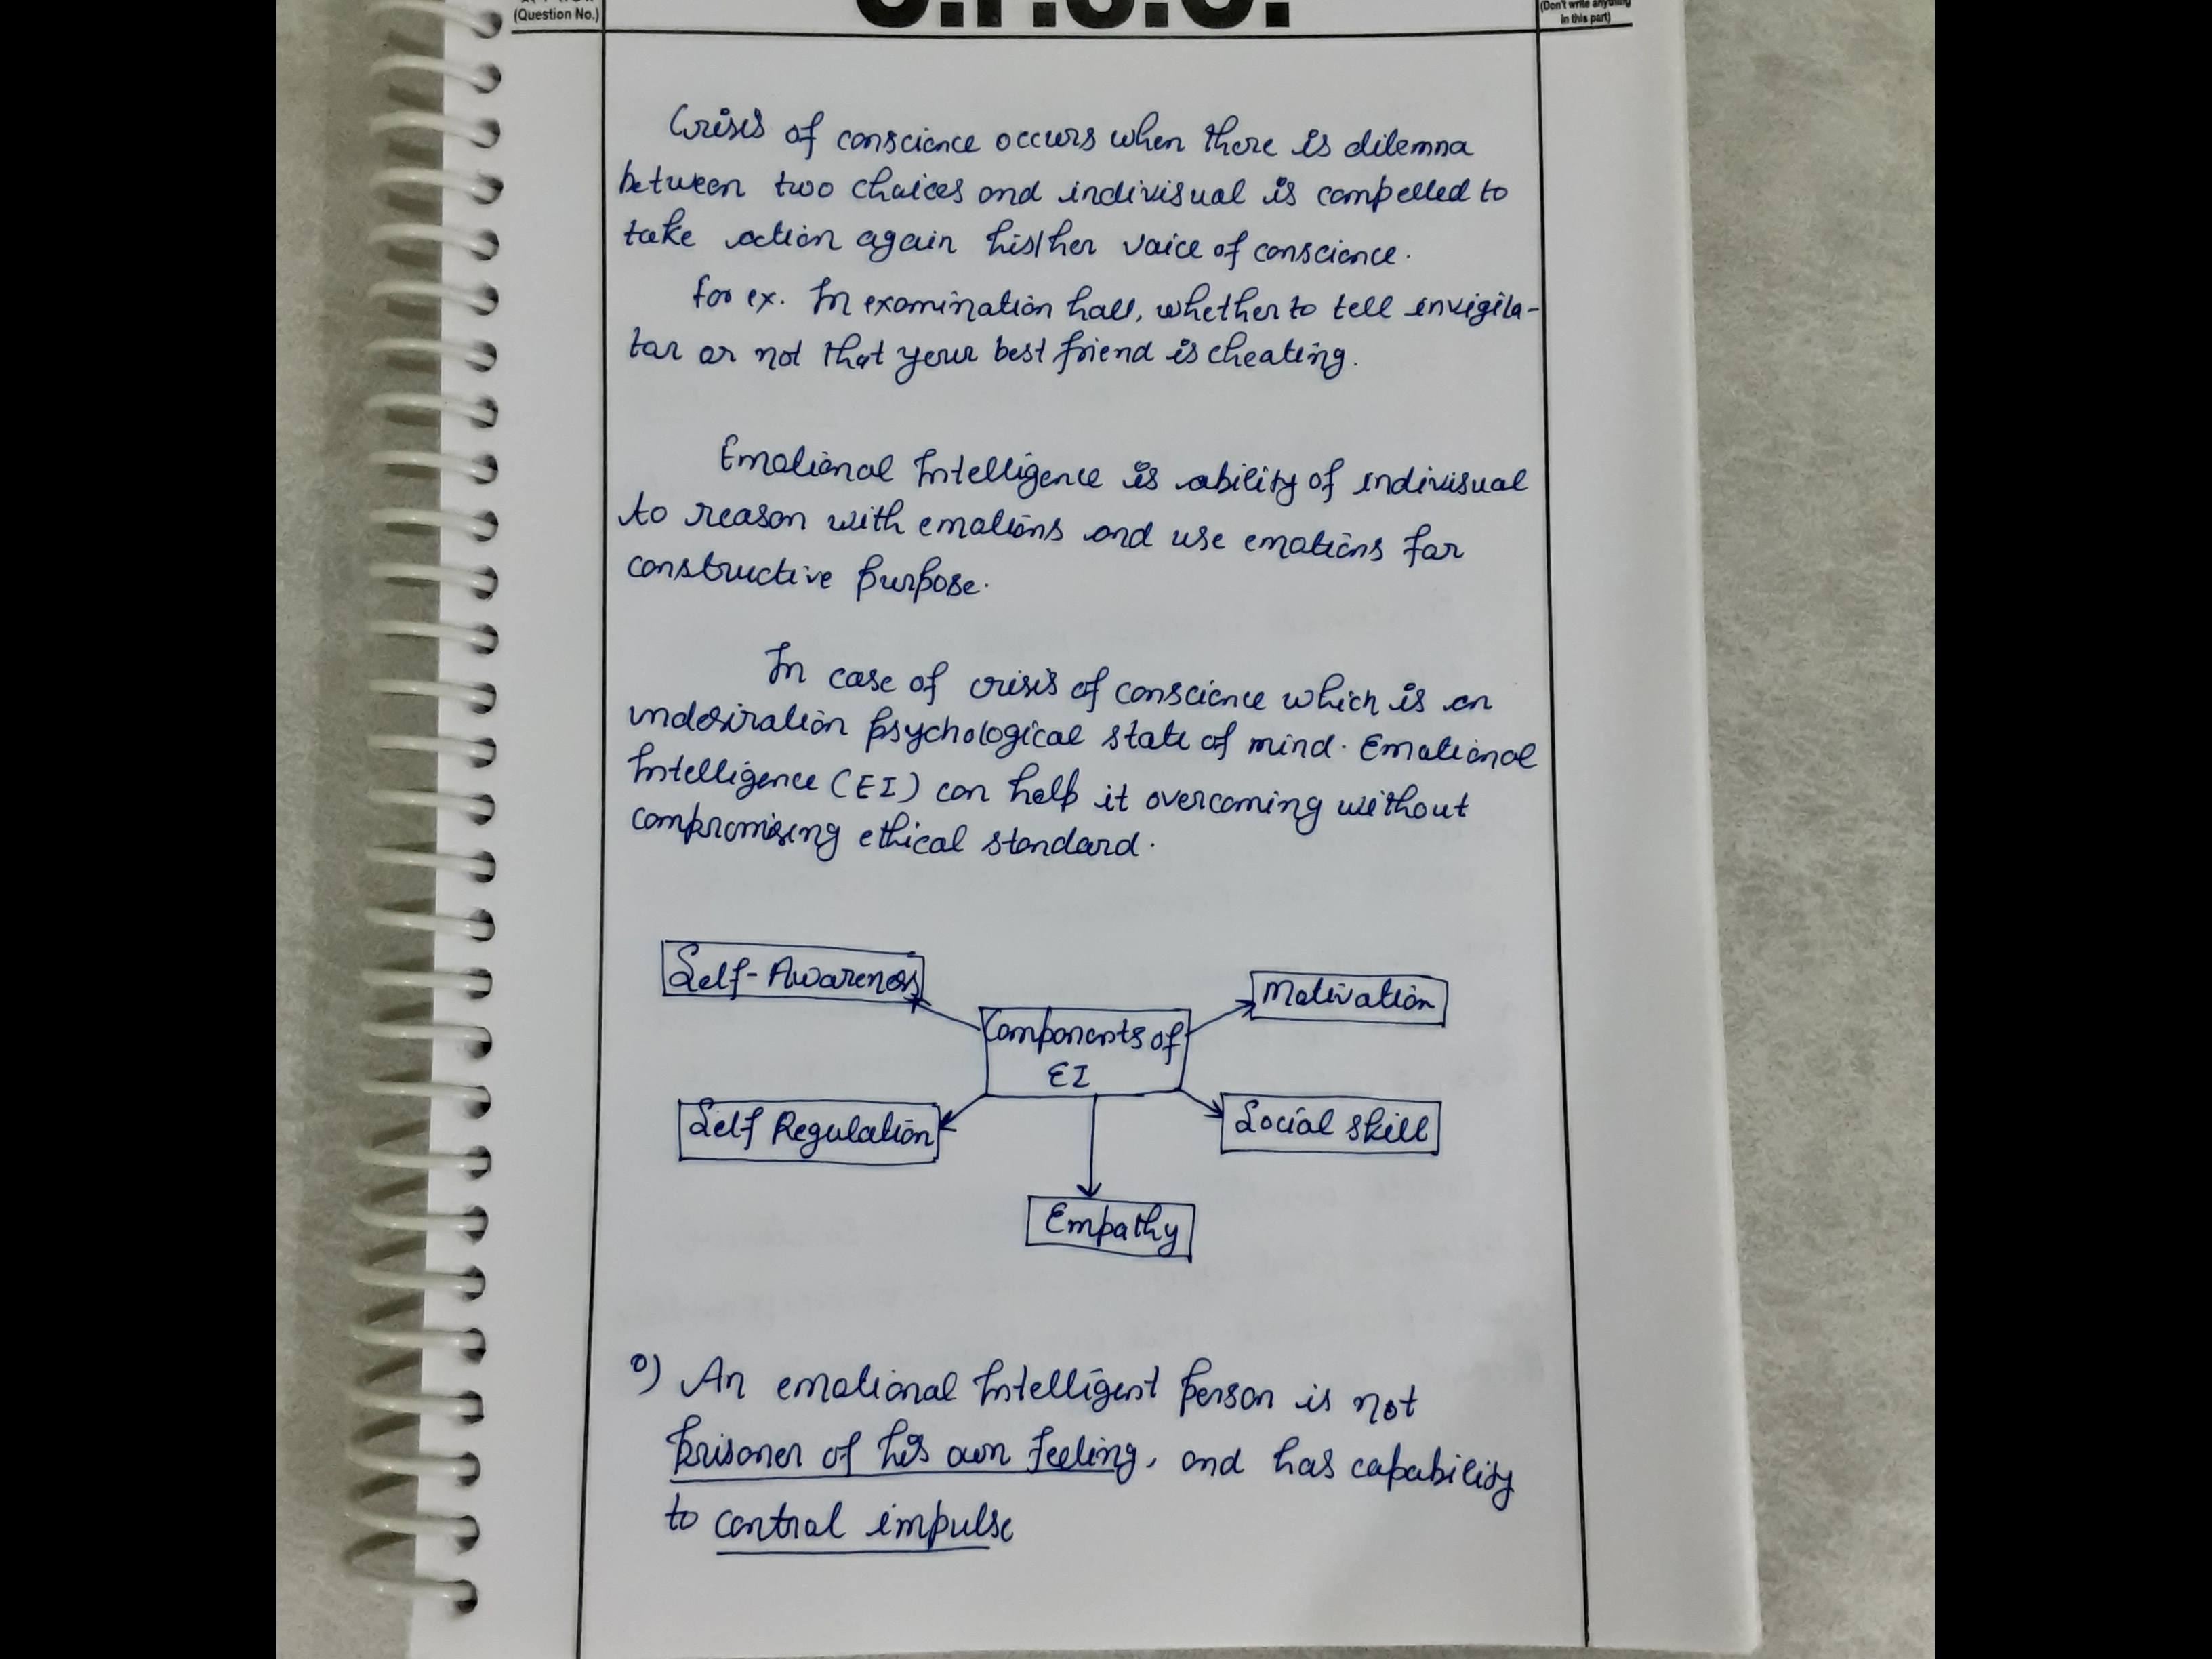 (Question No.)
U.P.S.C.
(Don't write anything
in this part)
Crisis of conscience occurs when there is dilemna
between two choices and indivisual is compelled to
take action again his/her voice of conscience.
for ex. In examination hall, whether to tell invigila-
tor or not that your best friend is cheating.
Emotional Intelligence is ability of indivisual
to reason with emotions and use emotions for
constructive purpose.
In case of crisis of conscience which is an
undesiration psychological state of mind. Emotional
Intelligence (EI) can help it overcoming without
compromising ethical standard.
Self-Awareness
Motivation
Components of
EI
Self Regulation
Social skill
Empathy
o) An emotional Intelligent person is not
prisoner of his own feeling, and has capability
to control impulse